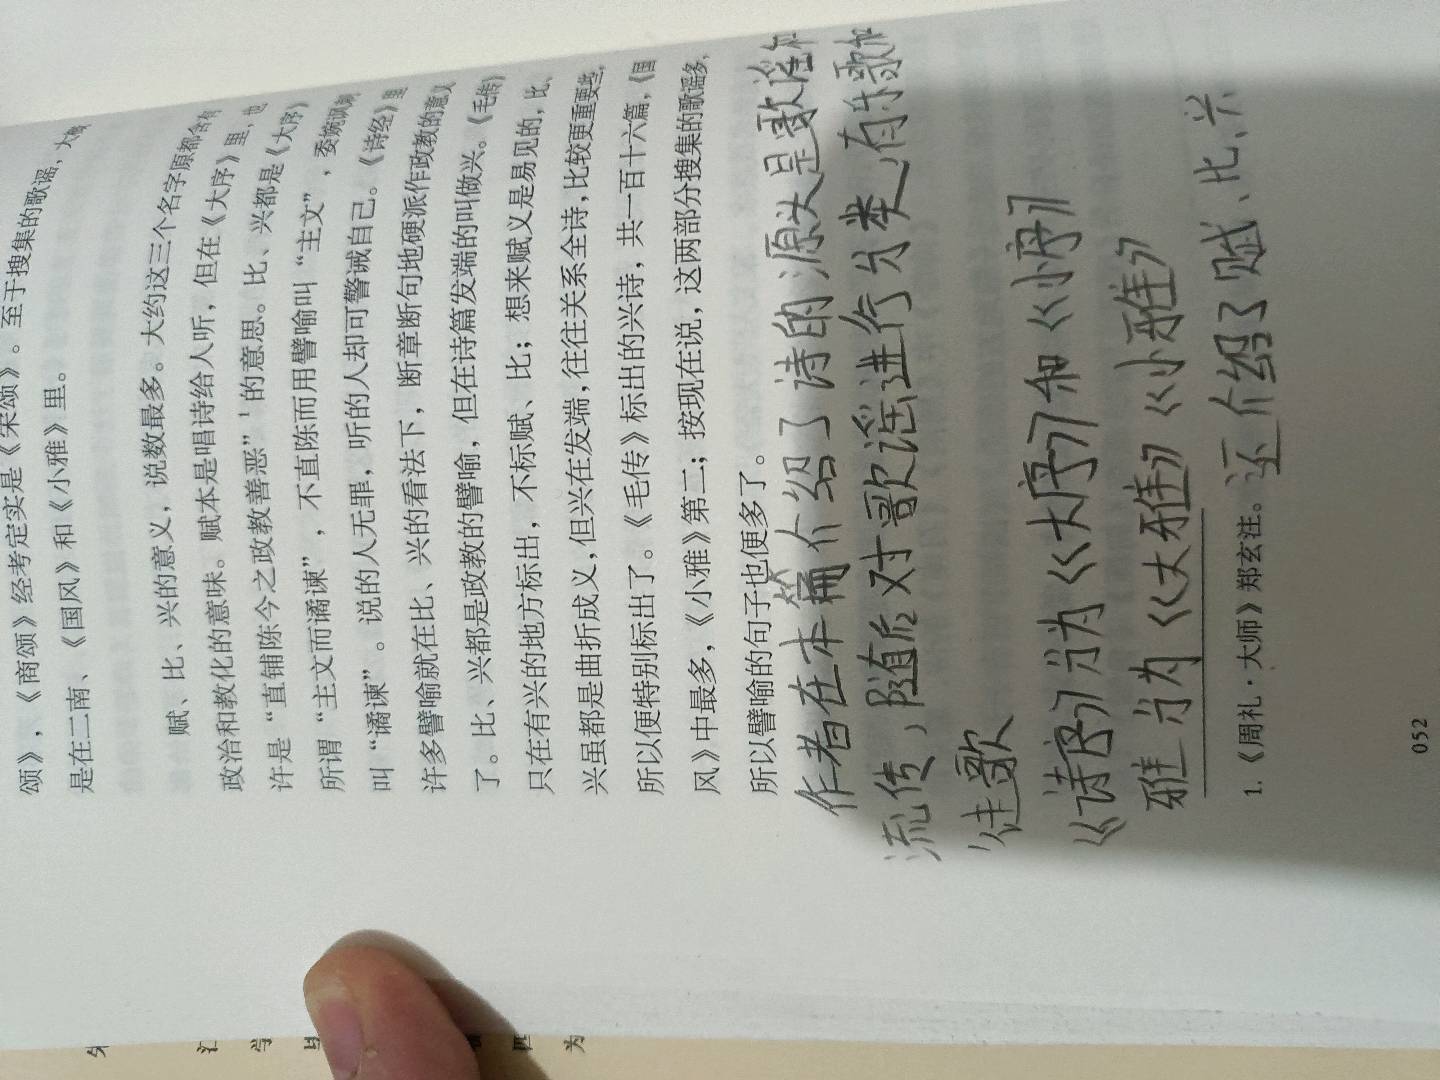 颂》，《商颂》经考定实是《宋颂》。至于搜集的歌谣，大
是在二南、《国风》和《小雅》里。
赋、比、兴的意义，说数最多。大约这三个名字原都含有
政治和教化的意味。赋本是唱诗给人听，但在《大序》里，也
许是“直铺陈今之政教善恶”¹的意思。比、兴都是《大序》
所谓“主文而谲谏”，不直陈而用譬喻叫“主文”，委婉讽刺
叫“谲谏”。说的人无罪，听的人却可警诫自己。《诗经》里
许多譬喻就在比、兴的看法下，断章断句地硬派作政教的意义
了。比、兴都是政教的譬喻，但在诗篇发端的叫做兴。《毛传》
只在有兴的地方标出，不标赋、比；想来赋义是易见的，比、
兴虽都是曲折成义，但兴在发端，往往关系全诗，比较更重要些，
所以便特别标出了。《毛传》标出的兴诗，共一百十六篇，《国
风》中最多，《小雅》第二；按现在说，这两部分搜集的歌谣多，
所以譬喻的句子也便多了。
作者在本篇介绍了诗的源头是歌谣和
流传，随后对歌谣进行分类，有乐歌和
徒歌
《诗序》分为《大序》和《小序》
雅分为《大雅》《小雅》
还介绍了赋、比、兴
1.《周礼·大师》郑玄注。
052
汇
学
匹
为